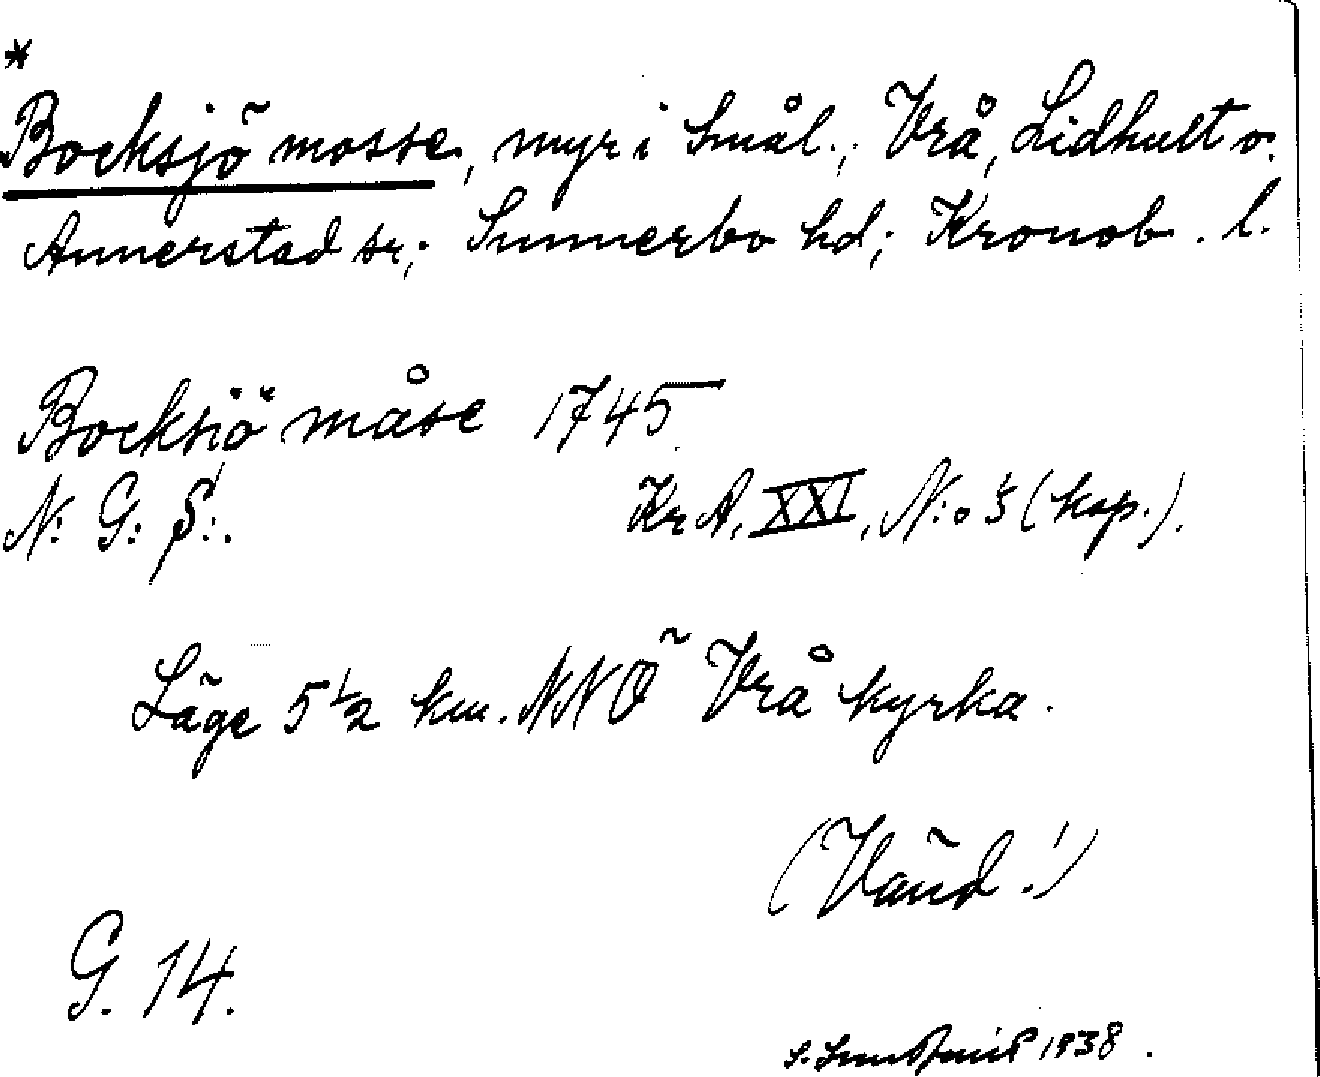 *
Bocksjö mosse, myr i Smål.; Vrå, Lidhult o.
Annerstad sr; Sunnerbo hd; Kronob. l.
Bocksiö måse 1745
N: G: S:. Kr A, XXI, N:o 5 (kop.).
Läge 5 1/2 km. NNÖ Vrå kyrka.
(Vänd!)
G. 14.
S. 1938.